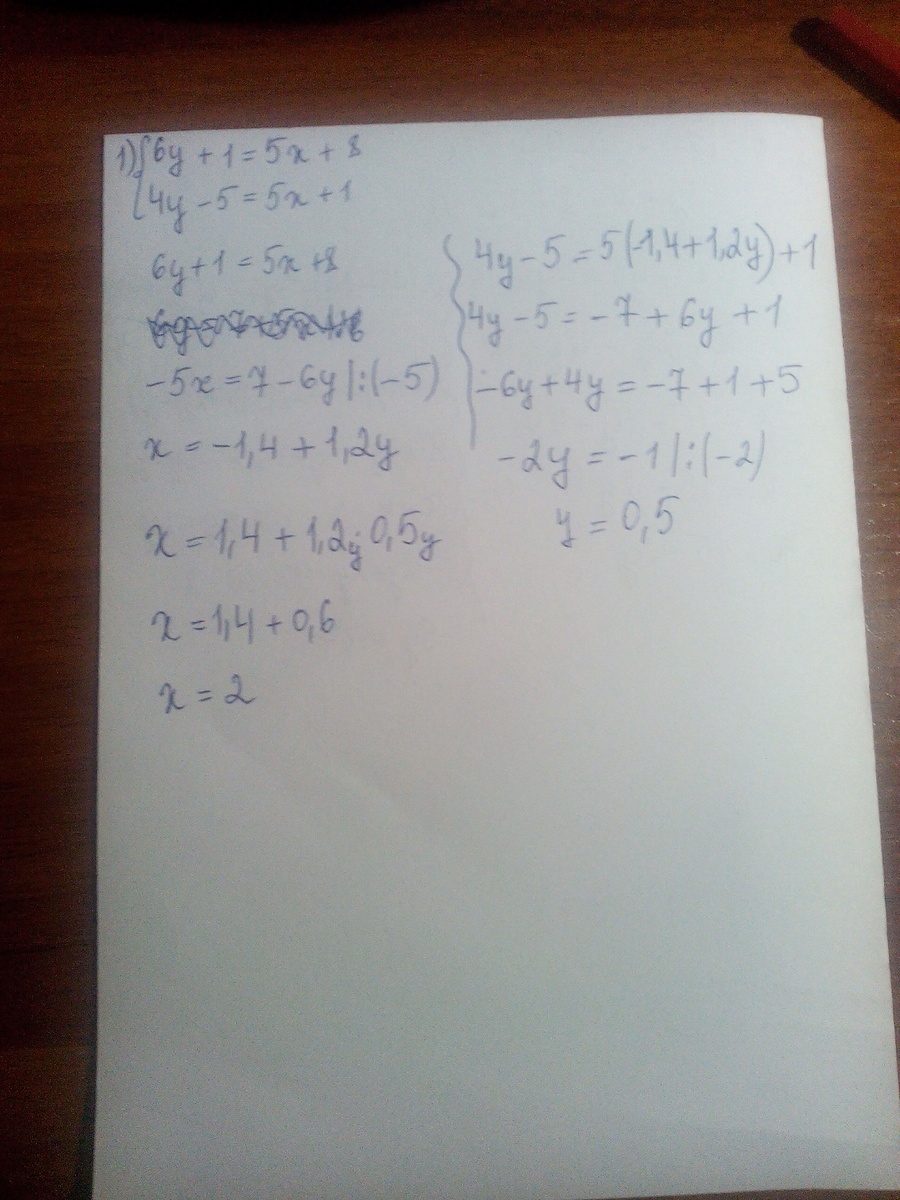 1) {6y + 1 = 5x + 8
4y - 5 = 5x + 1
6y + 1 = 5x + 8
-5x = 7 - 6y |:(-5)
x = -1,4 + 1,2y
x = 1,4 + 1,2y 0,5y
x = 1,4 + 0,6
x = 2
{4y - 5 = 5(-1,4 + 1,2y) + 1
4y - 5 = -7 + 6y + 1
-6y + 4y = -7 + 1 + 5
-2y = -1 |:(-2)
y = 0,5